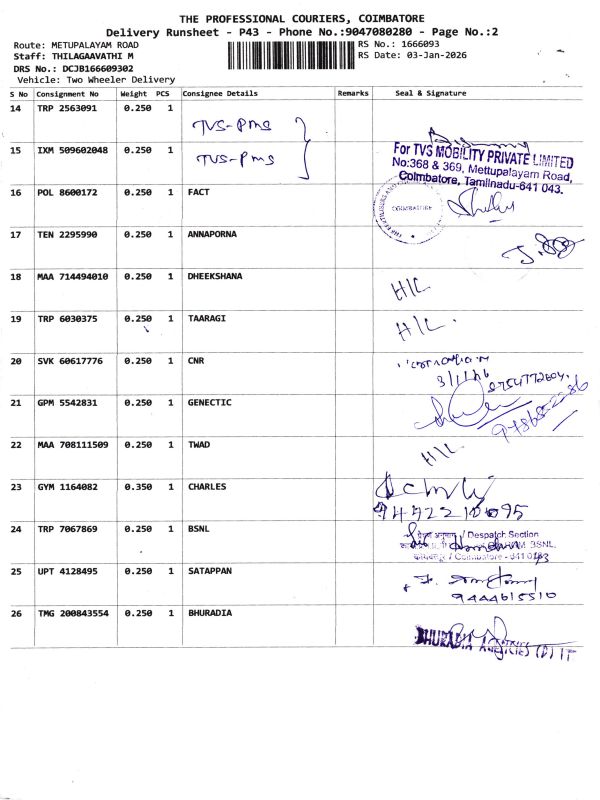 THE PROFESSIONAL COURIERS, COIMBATORE
Delivery Runsheet - P43 - Phone No.:9047080280 - Page No.:2
Route: METUPALAYAM ROAD
RS No.: 1666093
Staff: THILAGAAVATHI M
RS Date: 03-Jan-2026
DRS No.: DCJB166609302
Vehicle: Two Wheeler Delivery
S No Consignment No Weight PCS Consignee Details Remarks Seal & Signature
14 TRP 2563091 0.250 1
TVS-PMS
15 IXM 509602048 0.250 1
TVS-PMS
For TVS MOBILITY PRIVATE LIMITED
No:368 & 369, Mettupalayam Road,
Coimbatore, Tamilnadu-641 043.
16 POL 8600172 0.250 1 FACT
COIMBATORE
17 TEN 2295990 0.250 1 ANNAPORNA
18 MAA 714494010 0.250 1 DHEEKSHANA
H/L
19 TRP 6030375 0.250 1 TAARAGI
H/L.
20 SVK 60617776 0.250 1 CNR
3/1/26
21 GPM 5542831 0.250 1 GENECTIC
22 MAA 708111509 0.250 1 TWAD
H/L
23 GYM 1164082 0.350 1 CHARLES
24 TRP 7067869 0.250 1 BSNL
/ Despatch Section
BSNL,
/ Coimbatore - 641 043
25 UPT 4128495 0.250 1 SATAPPAN
9444615510
26 TMG 200843554 0.250 1 BHURADIA
BHURADIA